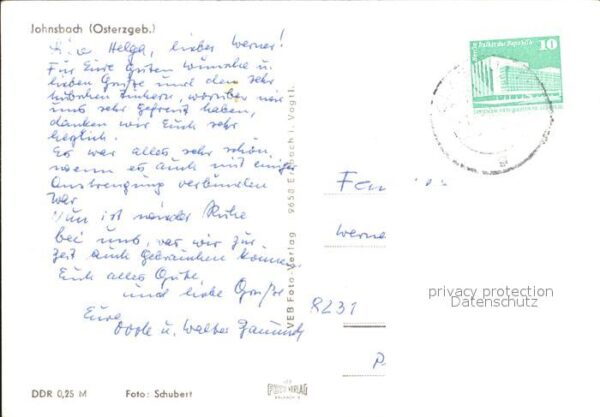 Johnsbach (Osterzgeb.)
Helga, lieber Werner!
Für Eure guten Wünsche u.
lieben Grüße und den sehr
hübschen worüber wir
uns sehr gefreut haben,
danken wir Euch sehr
herzlich.
Es war alles sehr schön,
wenn es auch mit einiger
Anstrengung verbunden
war.
Nun ist wieder Ruhe
bei uns, was wir zur
Zeit auch gebrauchen können.
Euch alles Gute
und liebe Grüße
Eure
u. Walter
DDR 0,25 M
Foto: Schubert
VEB Foto-Verlag 9658 Erlbach i. Vogtl.
Berlin Palast der Republik
10
Fam
Werne
8231
privacy protection
Datenschutz